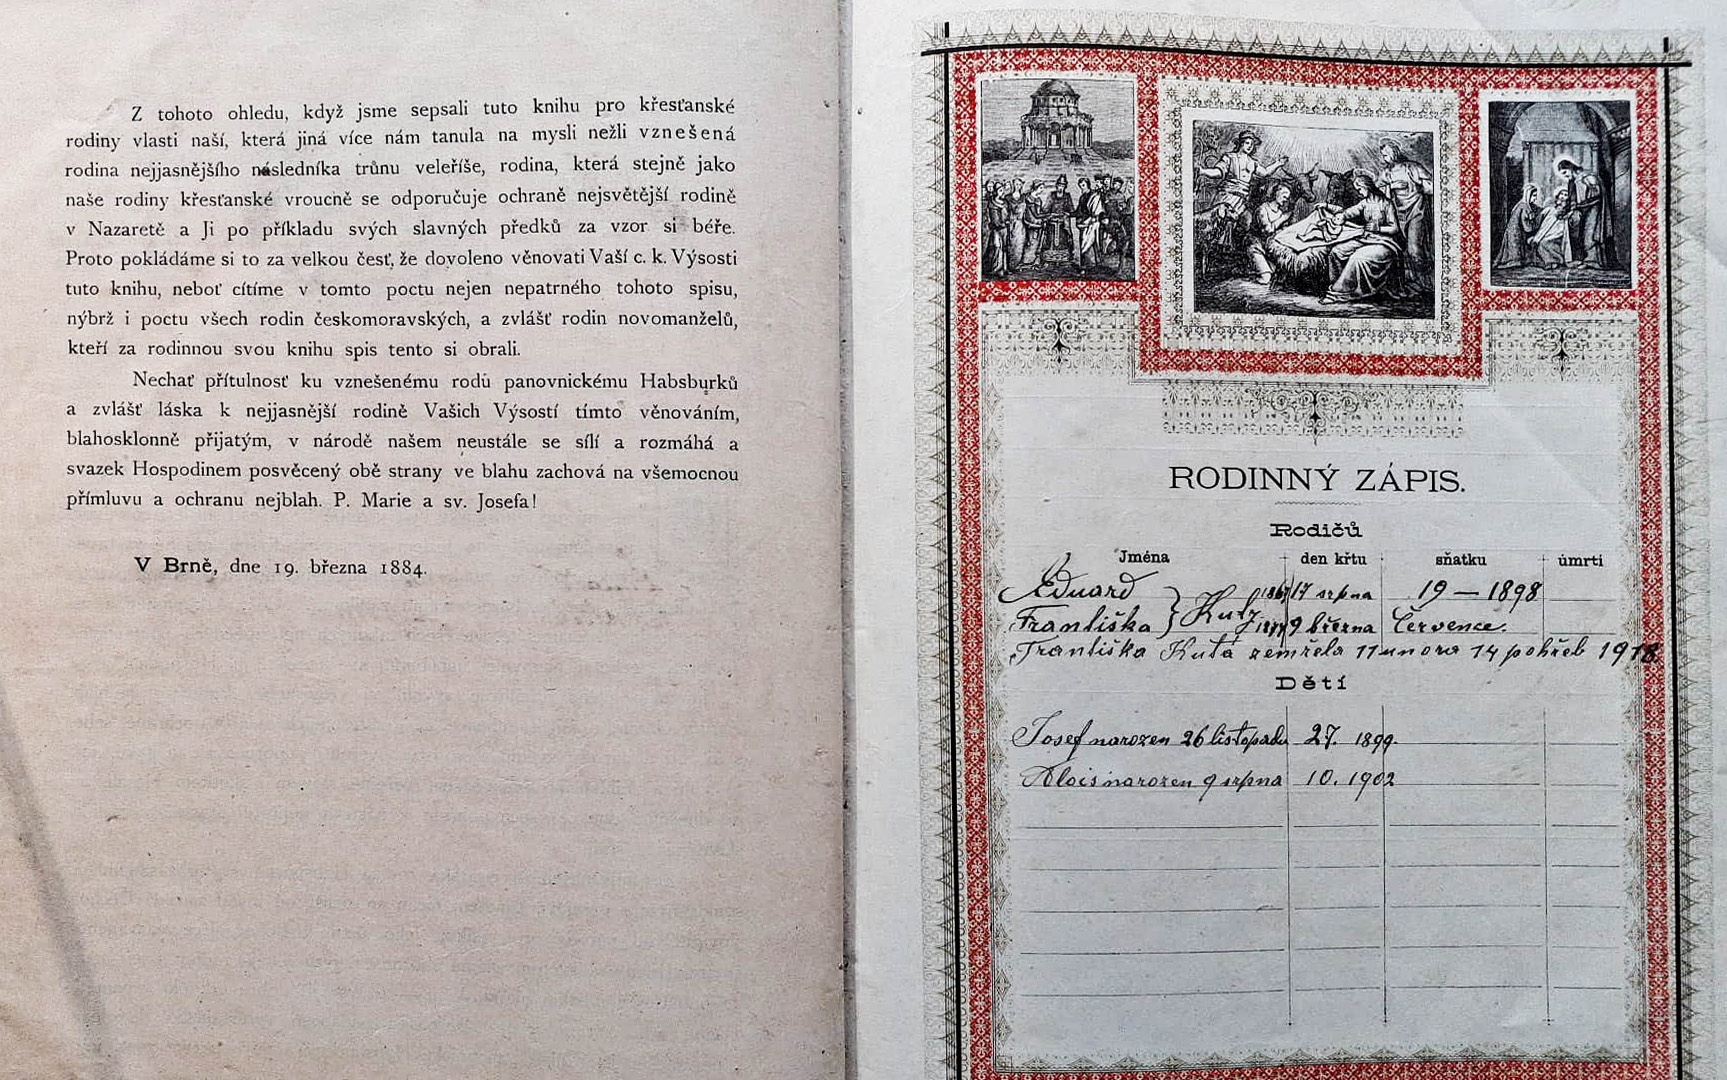 Z tohoto ohledu, když jsme sepsali tuto knihu pro křesťanské
rodiny vlasti naší, která jiná více nám tanula na mysli nežli vznešená
rodina nejjasnějšího následníka trůnu veleříše, rodina, která stejně jako
naše rodiny křesťanské vroucně se odporučuje ochraně nejsvětější rodině
v Nazaretě a Ji po příkladu svých slavných předků za vzor si béře.
Proto pokládáme si to za velkou čest, že dovoleno věnovati Vaší c. k. Výsosti
tuto knihu, neboť cítíme v tomto poctu nejen nepatrného tohoto spisu,
nýbrž i poctu všech rodin českomoravských, a zvlášť rodin novomanželů,
kteří za rodinnou svou knihu spis tento si obrali.
Nechať přítulnosť ku vznešenému rodu panovnickému Habsburků
a zvlášť láska k nejjasnější rodině Vašich Výsostí tímto věnováním,
blahosklonně přijatým, v národě našem neustále se sílí a rozmáhá a
svazek Hospodinem posvěcený obě strany ve blahu zachová na všemocnou
přímluvu a ochranu nejblah. P. Marie a sv. Josefa!
V Brně, dne 19. března 1884.
RODINNÝ ZÁPIS.
Rodičů
Jména den křtu sňatku úmrtí
Eduard 17 srpna 19 — 1898
Františka } Kutý 9 března Července.
Františka Kutá zemřela 11 unora 14 pohřeb 1918
Dětí
Josef narozen 26 listopadu 27. 1899.
Alois narozen 9 srpna 10. 1902